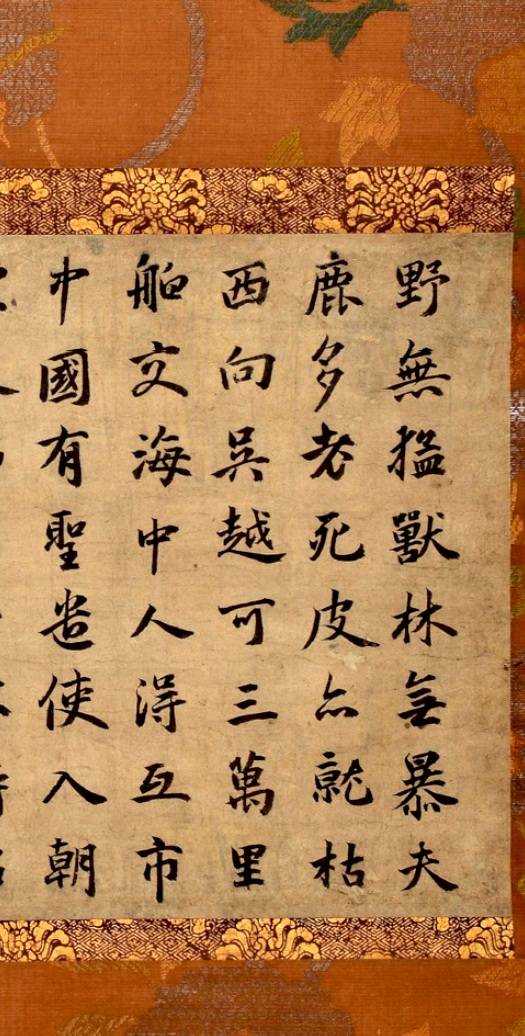 野無猛獸林無暴夫
鹿多老死皮亦就枯
西向吳越可三萬里
舶交海中人得互市
中國有聖遣使入朝